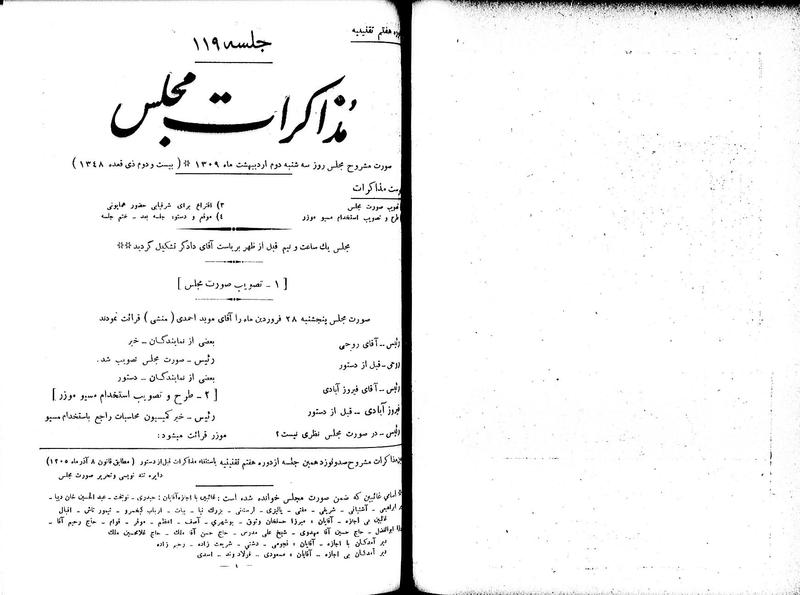 دوره هفتم تقنینیه
جلسه ۱۱۹
مذاکرات مجلس
صورت مشروح مجلس روز سه شنبه دوم اردیبهشت ماه ۱۳۰۹ * ( بیست و دوم ذی قعده ۱۳۴۸ )
فهرست مذاکرات
تصویب صورت مجلس
طرح و تصویب استخدام مسیو موزر
۳) اقتراع برای شرفیابی حضور همایونی
۴) موقع و دستور جلسه بعد - ختم جلسه
مجلس یك ساعت و نیم قبل از ظهر بریاست آقای دادگر تشکیل گردید **
[ ۱ - تصویب صورت مجلس ]
صورت مجلس پنجشنبه ۲۸ فروردین ماه را آقای موید احمدی ( منشی ) قرائت نمودند
رئیس - آقای روحی
روحی - قبل از دستور
رئیس - آقای فیروز آبادی
فیروز آبادی - قبل از دستور
رئیس - در صورت مجلس نظری نیست؟
بعضی از نمایندگان - خیر
رئیس - صورت مجلس تصویب شد.
بعضی از نمایندگان - دستور
[ ۲ - طرح و تصویب استخدام مسیو موزر ]
رئیس - خبر کمیسیون محاسبات راجع باستخدام مسیو
موزر قرائت میشود:
عین مذاکرات مشروح صدونوزدهمین جلسه از دوره هفتم تقنینیه باستثناء مذاکرات قبل از دستور ( مطابق قانون ۸ آذر ماه ۱۳۰۵ )
دایره تند نویسی و تحریر صورت مجلس
* اسامی غائبین که ضمن صورت مجلس خوانده شده است : غائبین با اجازه آقایان : حیدری - نوبخت - عبد الحسین خان دیبا -
ابراهیمی - آشتیانی - شریفی - مفتی - پالیزی - لرستانی - بزرك نیا - بیات - ارباب کیخسرو - تیمور تاش - اقبال
غائبین بی اجازه - آقایان : میرزا حسنخان وثوق - بوشهری - آصف - اعظم - موقر - قوام - حاج رحیم آقا -
ابوالفضل - حاج حسین آقا مهدوی - شیخ علی مدرس - حاج حسن آقا ملك - حاج غلامحسین ملك
دیر آمدگان با اجازه - آقایان : نجومی - دشتی - شریعت زاده - رحیم زاده
دیر آمدگان بی اجازه - آقایان : مسعودی - فولادوند - اسدی
- ۱ -